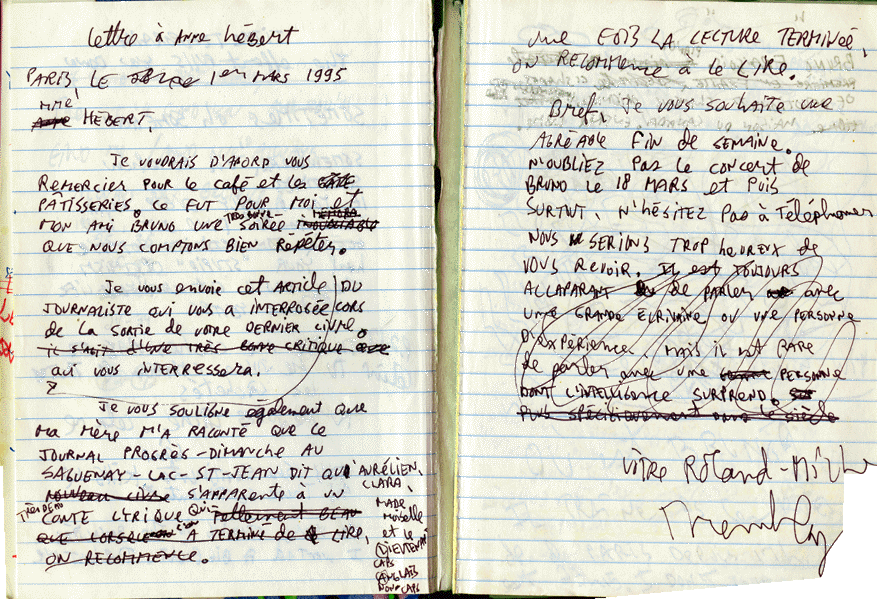 Lettre à Anne Hébert
PARIS LE 1er MARS 1995
MME
HÉBERT,
JE VOUDRAIS D'ABORD VOUS
REMERCIER POUR le café et les
PÂTISSERIES. CE FUT POUR MOI et
MON AMI BRUNO UNE TRÈS BONNE SOIRÉE
QUE NOUS COMPTONS BIEN RÉPÉTER.
Je vous envoie cet ARTICLE DU
JOURNALISTE QUI VOUS A INTERROGÉE LORS
de la sortie de votre DERNIER LIVRE.
il s'agit d'une TRÈS BONNE CRITIQUE
QUI VOUS INTERRESSERA.
Je vous souligne également que
ma mère M'A RACONTÉ QUE le
JOURNAL PROGRÈS-DIMANCHE AU
SAGUENAY-LAC-ST-JEAN DIT QU'AURÉLIEN,
CLARA,
MADE
MOISELLE
et le
LIEUTENANT
ANGLAIS
NOUVEAU LIVRE S'APPARENTE À UN
TRÈS BEAU
CONTE LYRIQUE QUI tellement BEAU
QUE LORSQUE L'ON A TERMINÉ de LIRE,
ON RECOMMENCE.
UNE FOIS LA LECTURE TERMINÉE,
ON RECOMMENCE à le LIRE.
Bref, Je vous souhaite une
AGRÉABLE FIN de SEMAINE.
N'OUBLIEZ PAS le CONCERT de
BRUNO le 18 MARS et PUIS
SURTOUT, N'hésitez PAS à Téléphoner
NOUS SERIONS TROP heureux de
VOUS REVOIR. Il est TOUJOURS
ACCAPARANT de PARLER avec
UNE GRANDE ÉCRIVAINE OU UNE PERSONNE
D'expérience. MAIS il est RARE
de parler avec une PERSONNE
DONT L'INTELLIGENCE SURPREND.
PLUS SPÉCIFIQUEMENT DANS le siècle
VÔTRE ROLAND-MICHEL
Tremblay